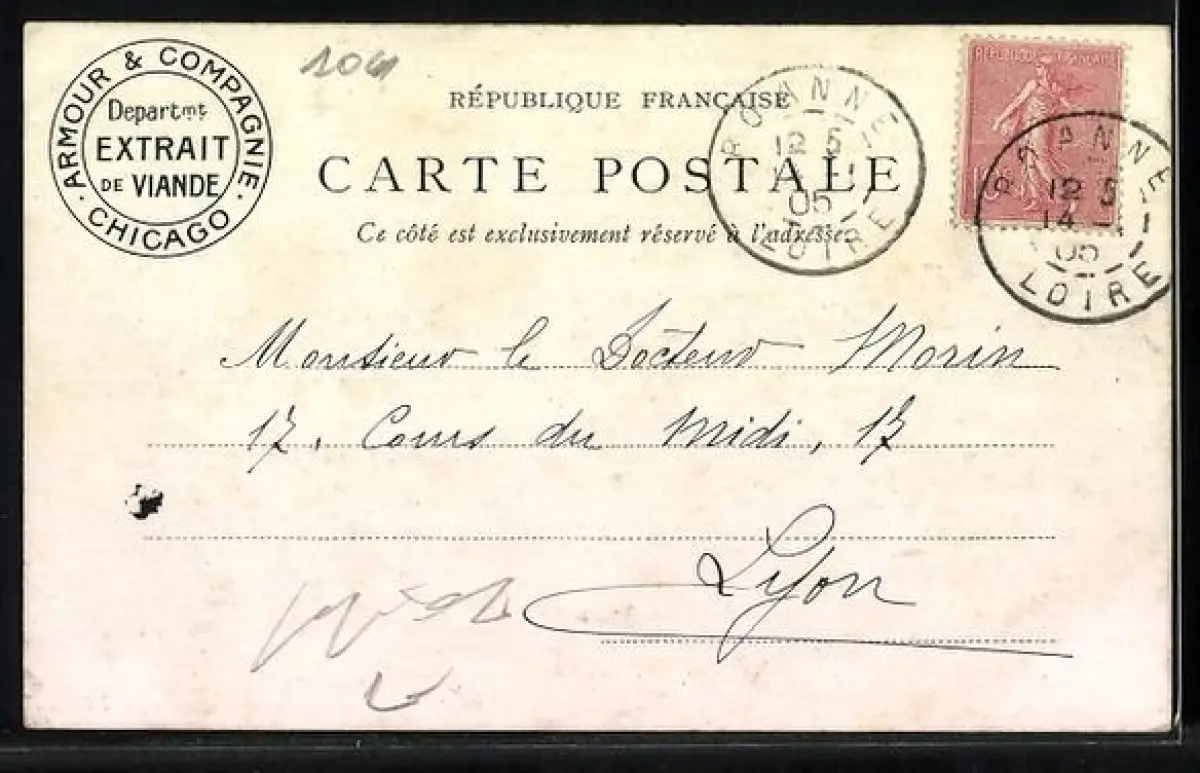 ARMOUR & COMPAGNIE
Departmt
EXTRAIT
DE VIANDE
· CHICAGO ·
RÉPUBLIQUE FRANÇAISE
CARTE POSTALE
Ce côté est exclusivement réservé à l'adresse.
ROANNE
12 5
05
LOIRE
ROANNE
12 5
14
05
LOIRE
Monsieur le Docteur Morin
17, Cours du Midi, 17
Lyon